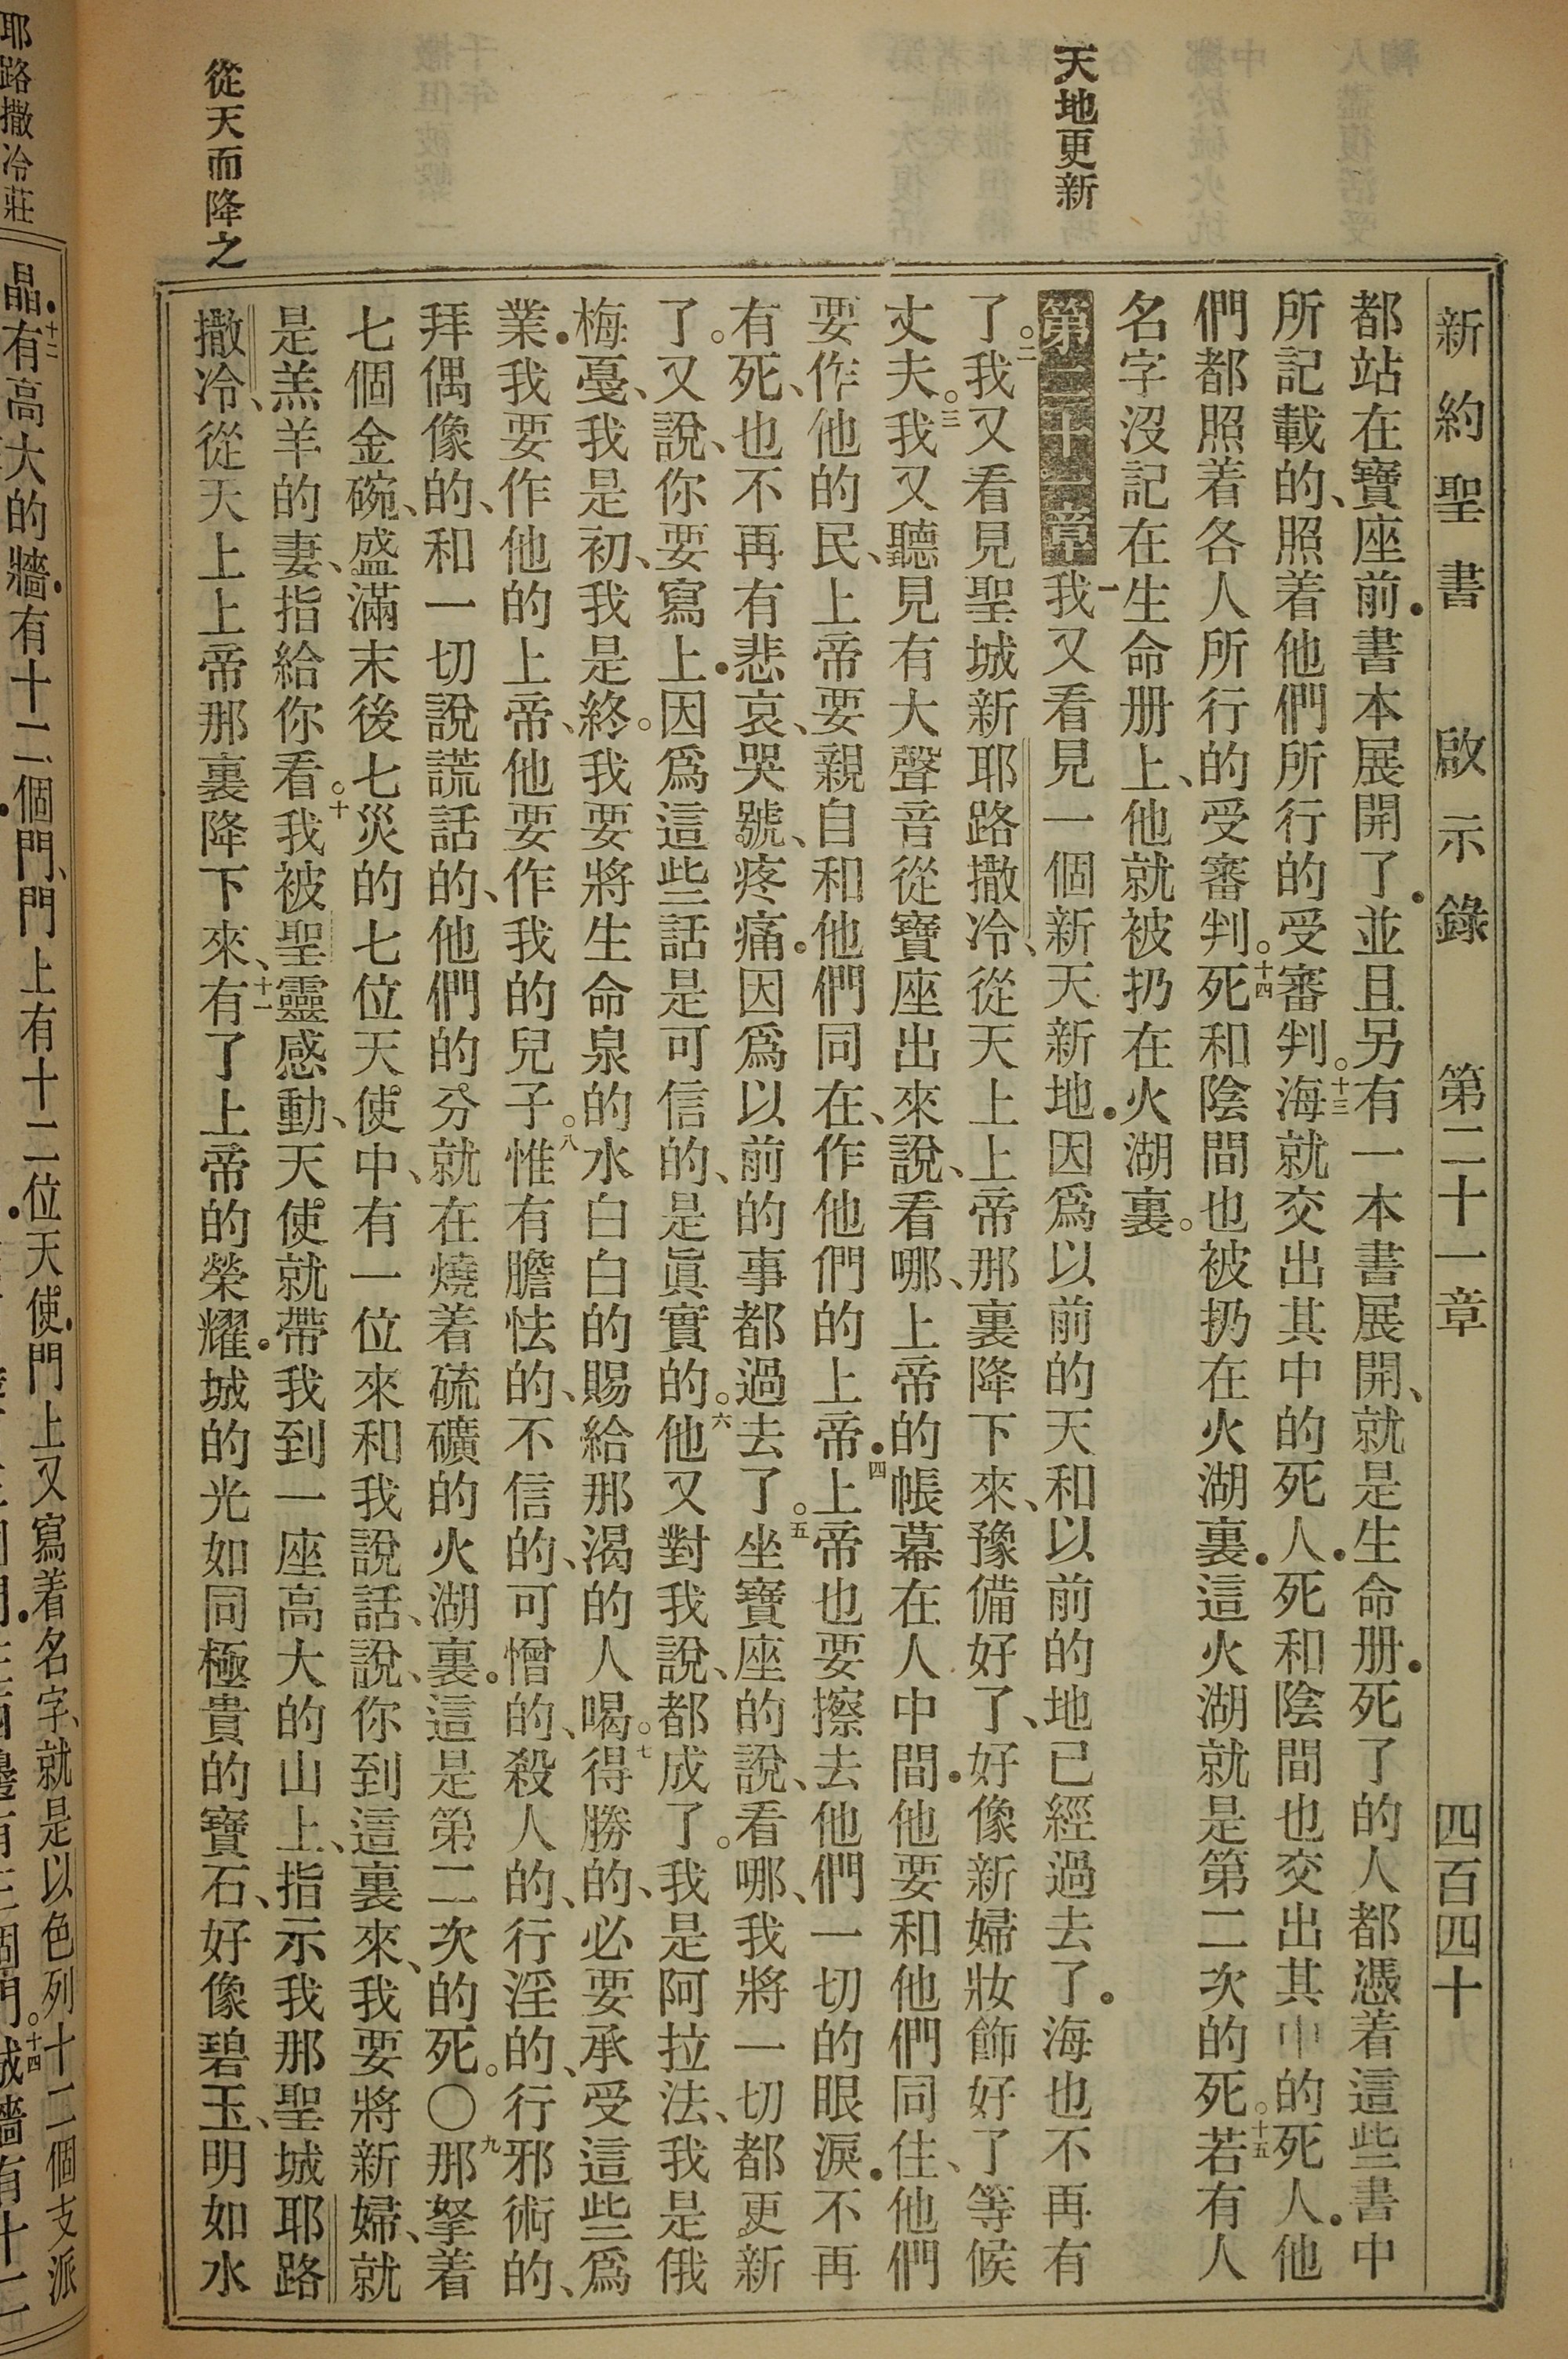 新約聖書 啟示錄 第二十一章 四百四十
天地更新
從天而降之
都站在寶座前.書本展開了.並且另有一本書展開、就是生命册.死了的人都憑着這些書中
所記載的、照着他們所行的受審判。十三海就交出其中的死人.死和陰間也交出其中的死人.他
們都照着各人所行的受審判。十四死和陰間也被扔在火湖裏.這火湖就是第二次的死。十五若有人
名字沒記在生命册上、他就被扔在火湖裏。
第二十一章 一我又看見一個新天新地.因爲以前的天和以前的地已經過去了.海也不再有
了。二我又看見聖城新耶路撒冷、從天上上帝那裏降下來、豫備好了、好像新婦妝飾好了等候
丈夫。三我又聽見有大聲音從寶座出來說、看哪、上帝的帳幕在人中間.他要和他們同住、他們
要作他的民、上帝要親自和他們同在、作他們的上帝.四上帝也要擦去他們一切的眼淚.不再
有死、也不再有悲哀、哭號、疼痛.因爲以前的事都過去了。五坐寶座的說、看哪、我將一切都更新
了。又說、你要寫上.因爲這些話是可信的、是眞實的。六他又對我說、都成了。我是阿拉法、我是俄
梅戞、我是初、我是終。我要將生命泉的水白白的賜給那渴的人喝。七得勝的、必要承受這些爲
業.我要作他的上帝、他要作我的兒子。八惟有膽怯的、不信的、可憎的、殺人的、行淫的、行邪術的、
拜偶像的、和一切說謊話的、他們的分、就在燒着硫礦的火湖裏.這是第二次的死。〇九那拏着
七個金碗、盛滿末後七災的七位天使中、有一位來和我說話、說、你到這裏來、我要將新婦、就
是羔羊的妻、指給你看。十我被聖靈感動、天使就帶我到一座高大的山上、指示我那聖城耶路
撒冷、從天上上帝那裏降下來、十一有了上帝的榮耀.城的光如同極貴的寶石、好像碧玉、明如水
耶路撒冷莊
晶.十二有高大的牆.有十二個門、門上有十二位天使.門上又寫着名字、就是以色列十二個支派